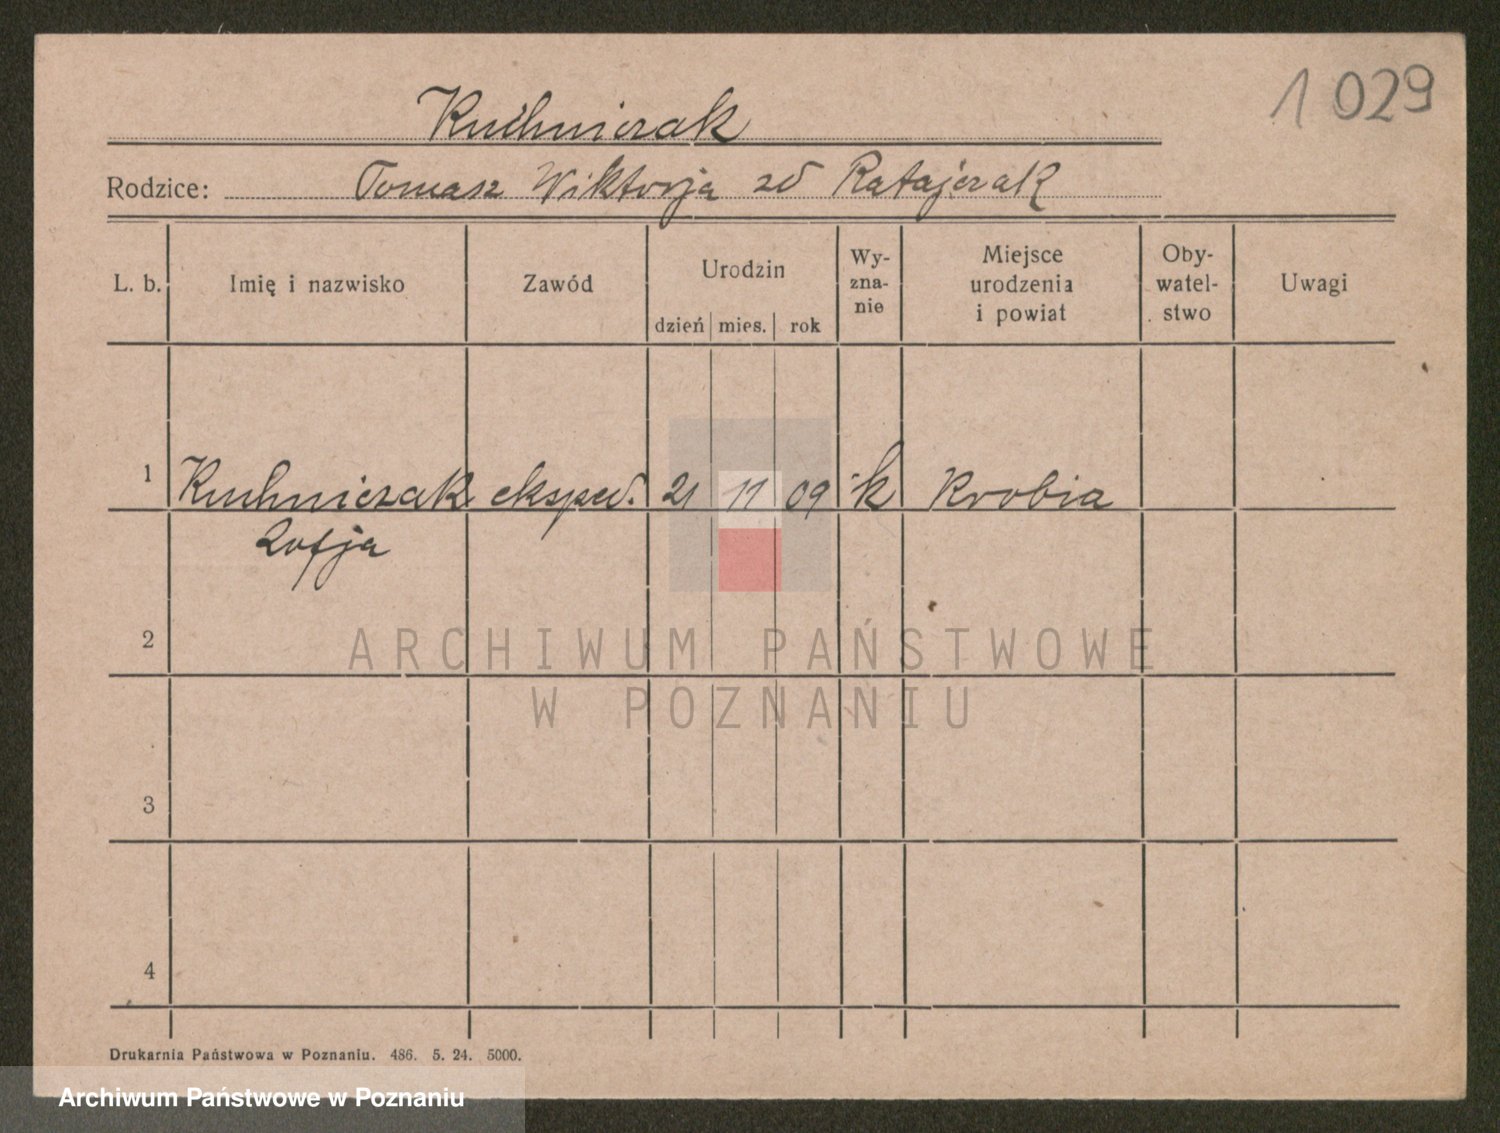 1 029
Kuchniczak
Rodzice: Tomasz Wiktorja zd Ratajczak
L. b. Imię i nazwisko Zawód Urodzin dzień mies. rok Wy-zna-nie Miejsce urodzenia i powiat Oby-watel-stwo Uwagi
1 Kuchniczak eksped. 21 11 09 k Krobia
Zofja
2
ARCHIWUM PAŃSTWOWE
W POZNANIU
3
4
Drukarnia Państwowa w Poznaniu. 486. 5. 24. 5000.
Archiwum Państwowe w Poznaniu